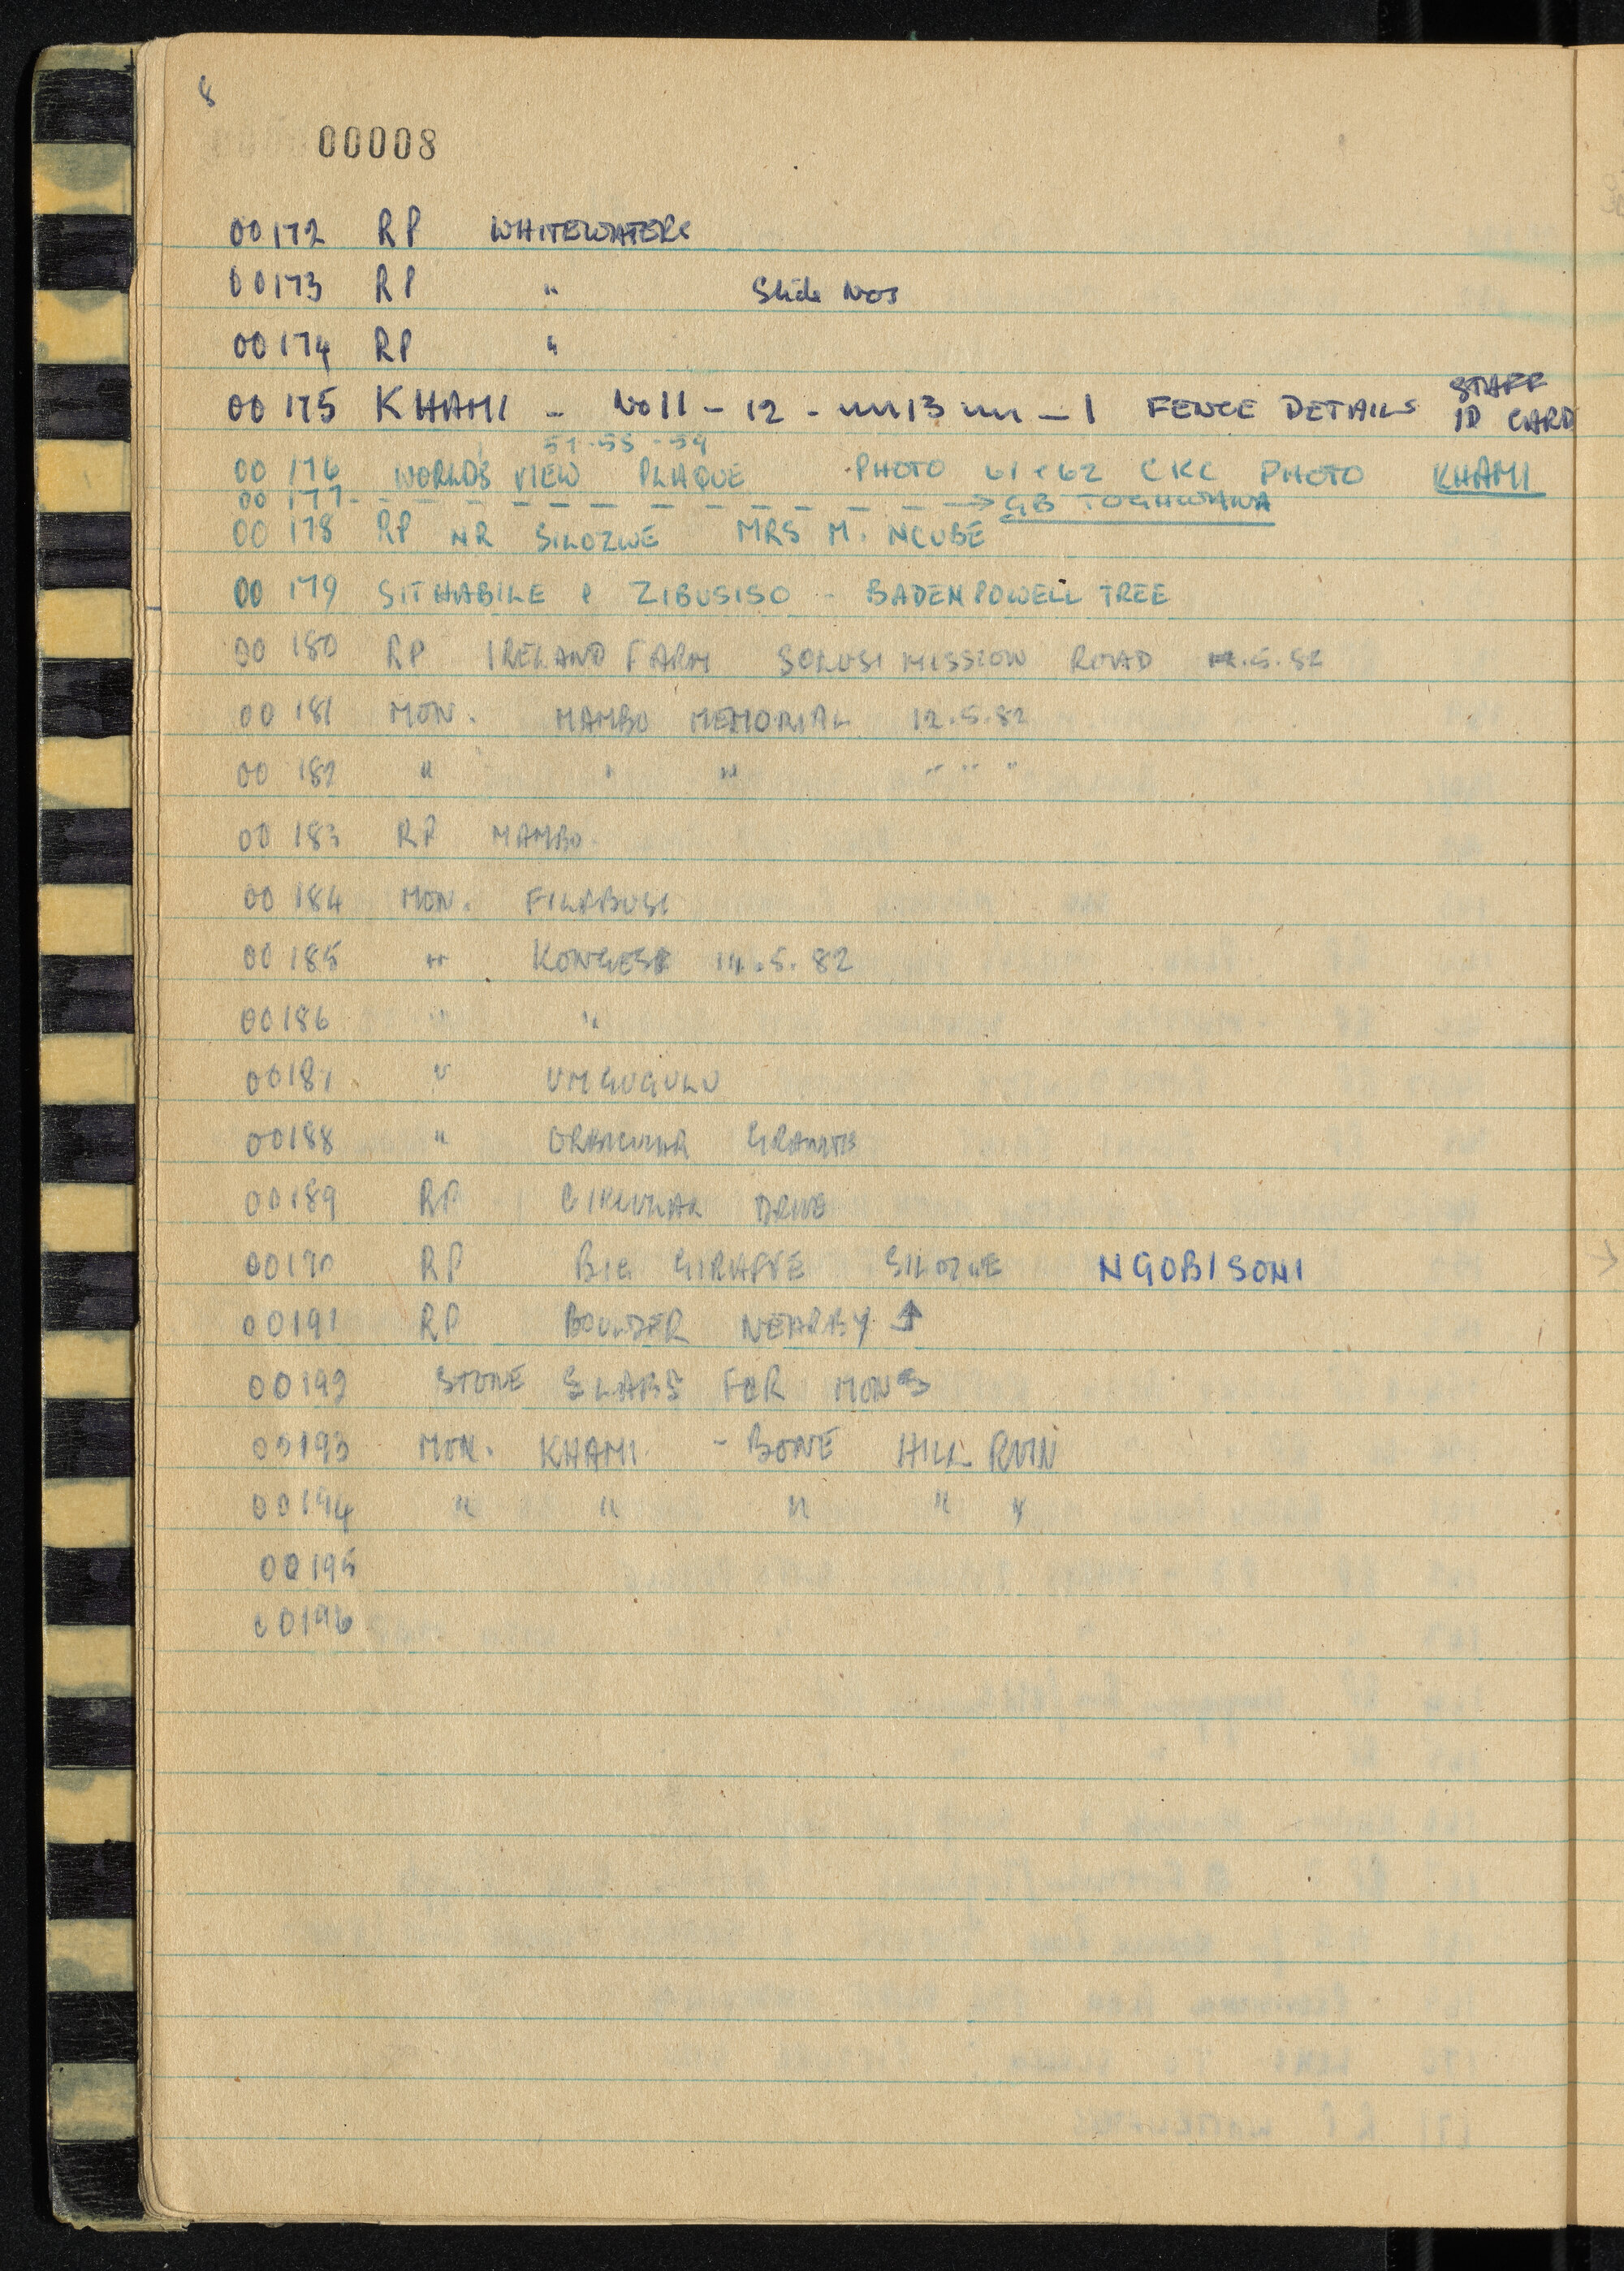 8
00008
00172 RP WHITEWATERS
00173 RP " Slide Nos
00174 RP "
00175 KHAMI - No 11 - 12 - 13 - 1 FENCE DETAILS STAFF ID CARD
00 176 WORLDS VIEW PLAQUE PHOTO 61 & 62 CKC PHOTO KHAMI
00 177 - - - - - - - - - - - → GB
00 178 RP NR SILOZWE MRS M. NCUBE
00 179 SITHABILE & ZIBUSISO - BADEN POWELL TREE
00 180 RP IRELAND FARM SOLUSI MISSION ROAD
00 181 MON. MAMBO MEMORIAL 12.5.82
00 182 " " " " " "
00 183 RP MAMBO
00 184 MON. FILABUSI
00 185 " 14.5.82
00186 " "
00187 " UMGUGULU
00188 " ORBICULAR GRANITE
00189 RP CIRCULAR DRIVE
00190 RP BIG GIRAFFE SILOZWE NGOBISONI
00191 RP BOULDER NEARBY ↑
00192 STONE SLABS FOR MONS
00193 MON. KHAMI - BONE HILL RUIN
00194 " " " " "
00195
00196